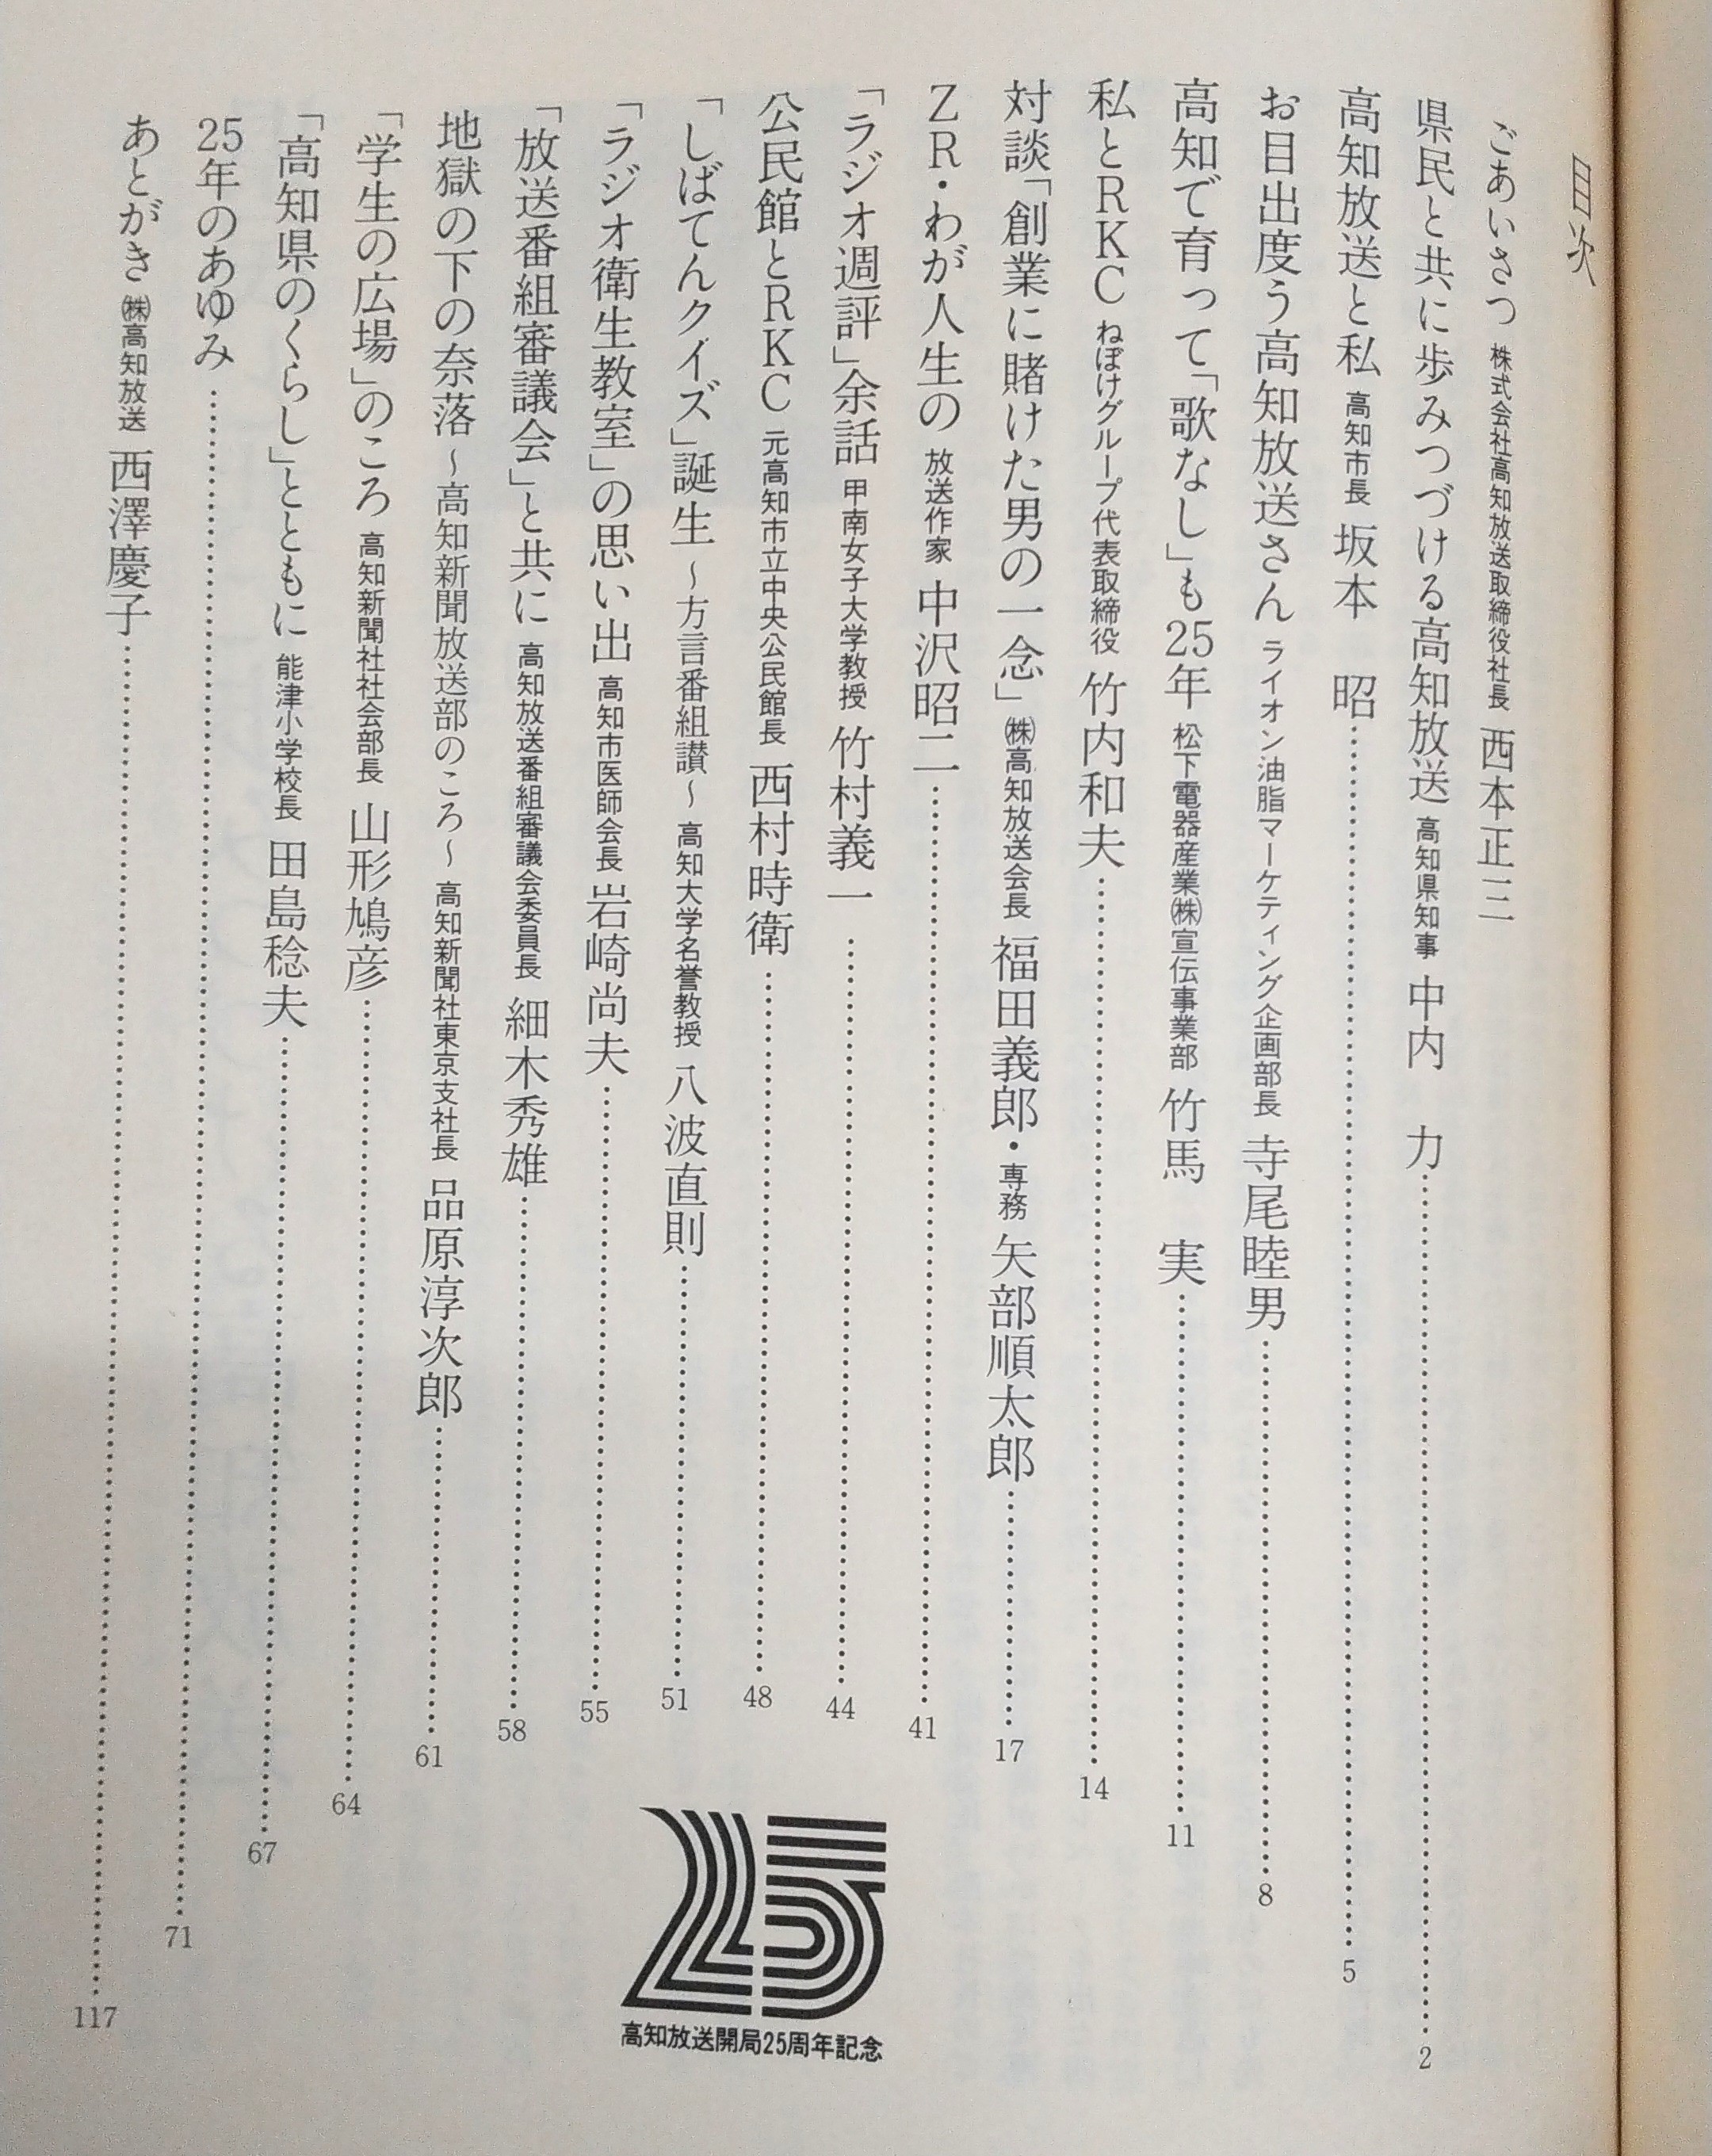 目次
ごあいさつ 株式会社高知放送取締役社長 西本正三
県民と共に歩みつづける高知放送 高知県知事 中内 力……2
高知放送と私 高知市長 坂本 昭……5
お目出度う高知放送さん ライオン油脂マーケティング企画部長 寺尾睦男……8
高知で育って「歌なし」も25年 松下電器産業㈱宣伝事業部 竹馬 実……11
私とRKC ねぼけグループ代表取締役 竹内和夫……14
対談「創業に賭けた男の一念」 ㈱高知放送会長 福田義郎・専務 矢部順太郎……17
ZR・わが人生の 放送作家 中沢昭二……41
「ラジオ週評」余話 甲南女子大学教授 竹村義一……44
公民館とRKC 元高知市立中央公民館長 西村時衛……48
「しばてんクイズ」誕生 ~方言番組讃~ 高知大学名誉教授 八波直則……51
「ラジオ衛生教室」の思い出 高知市医師会長 岩崎尚夫……55
「放送番組審議会」と共に 高知放送番組審議会委員長 細木秀雄……58
地獄の下の奈落 ~高知新聞放送部のころ~ 高知新聞社東京支社長 品原淳次郎……61
「学生の広場」のころ 高知新聞社社会部長 山形鳩彦……64
「高知県のくらし」とともに 能津小学校長 田島稔夫……67
25年のあゆみ……71
あとがき ㈱高知放送 西澤慶子……117
25
高知放送開局25周年記念